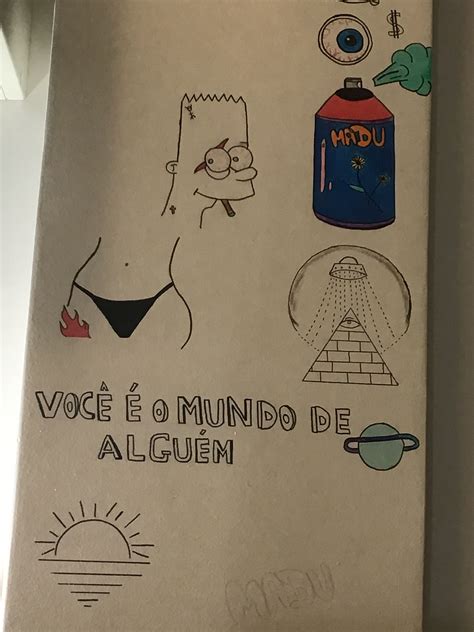 $
MADU
VOCÊ É O MUNDO DE
ALGUÉM
MADU